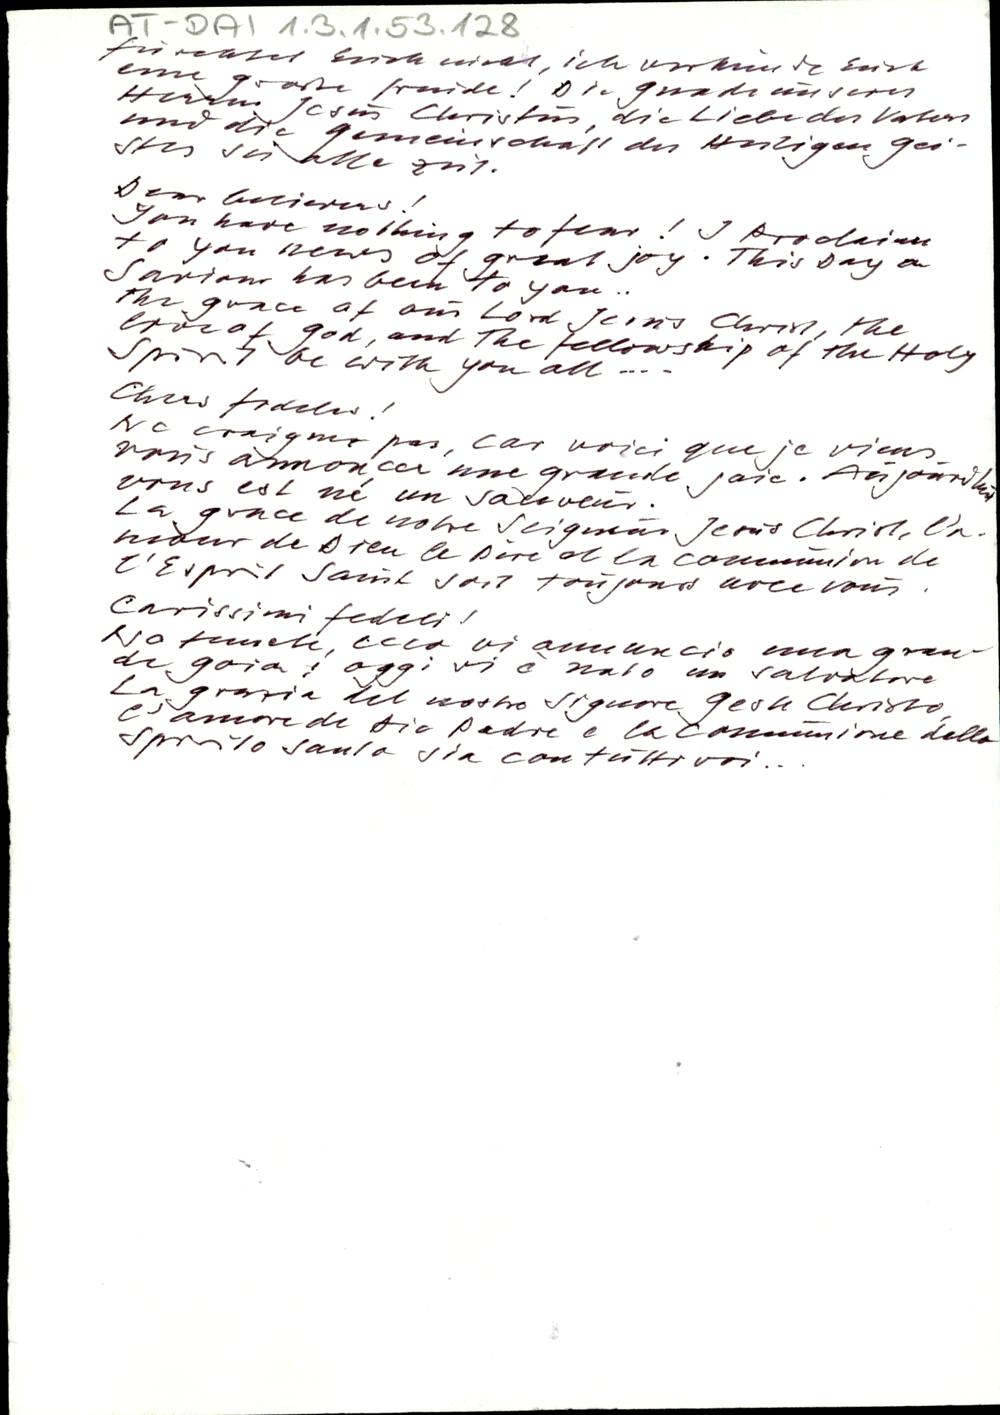 AT-DAI 1.3.1.53.128
fürchtet Euch nicht, ich verkünde Euch
eine große freude! Die gnade unseres
Herrn Jesus Christus, die Liebe des Vaters
und die gemeinschaft des Heiligen gei-
stes sei alle zeit.
Dear believers!
You have nothing to fear! I Proclaim
to you news of great joy. This Day a
Saviour has been to you..
the grace of our Lord Jesus Christ, the
love of god, and the fellowship of the Holy
Spirit be with you all ....
Chers fideles!
Ne craignez pas, car voici que je viens
vous annoncer une grande joie. Aujourd'hui
vous est né un sauveur.
La grace de notre Seigneur Jesus Christ, l'a-
mour de Dieu le Père et la communion de
l'Esprit Saint soit toujours avec vous.
Carissimi fedeli!
No temete, ecco vi annuncio una gran-
de goia: oggi vi è nato un salvatore
La grazia del nostro Signore Gesu Christo,
l'amore de Dio Padre e la communione dello
Spirito Santo sia con tutti voi...